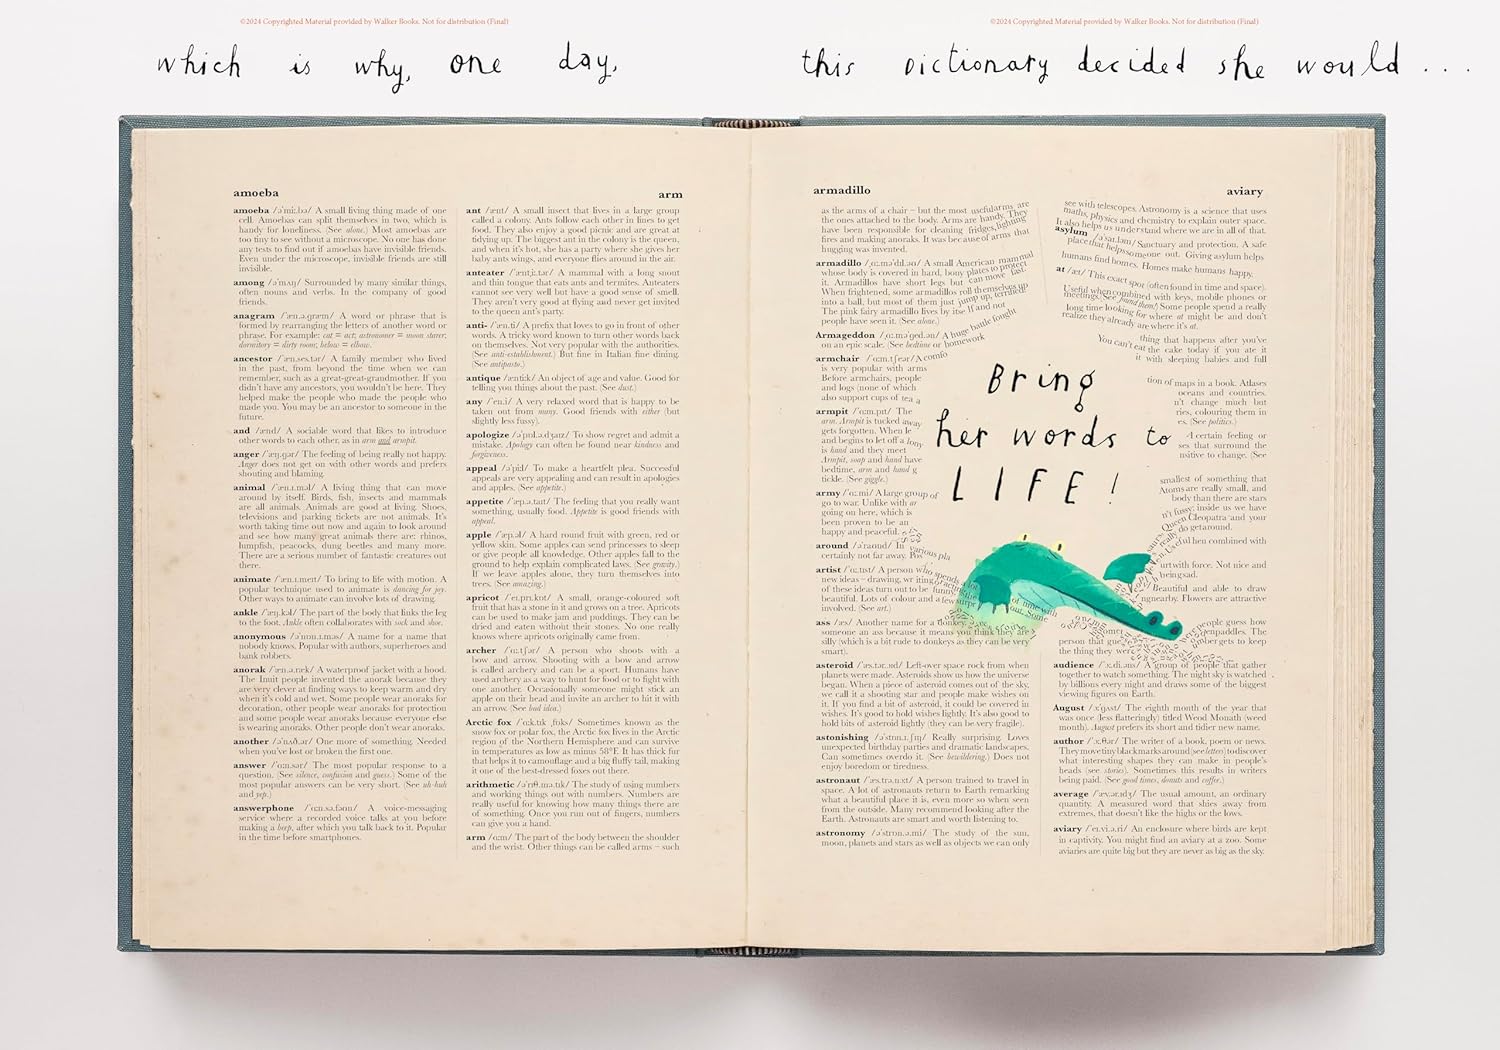 ©2024 Copyrighted Material provided by Walker Books. Not for distribution (Final)
©2024 Copyrighted Material provided by Walker Books. Not for distribution (Final)
which is why, one day,
this dictionary decided she would ...
amoeba
arm
amoeba /əˈmiː.bə/ A small living thing made of one
cell. Amoebas can split themselves in two, which is
handy for loneliness. (See alone.) Most amoebas are
too tiny to see without a microscope. No one has done
any tests to find out if amoebas have invisible friends.
Even under the microscope, invisible friends are still
invisible.
among /əˈmʌŋ/ Surrounded by many similar things,
often nouns and verbs. In the company of good
friends.
anagram /ˈæn.ə.græm/ A word or phrase that is
formed by rearranging the letters of another word or
phrase. For example: cat = act; astronomer = moon starer;
dormitory = dirty room; below = elbow.
ancestor /ˈæn.ses.tər/ A family member who lived
in the past, from beyond the time when we can
remember, such as a great-great-grandmother. If you
didn't have any ancestors, you wouldn't be here. They
helped make the people who made the people who
made you. You may be an ancestor to someone in the
future.
and /ænd/ A sociable word that likes to introduce
other words to each other, as in arm and armpit.
anger /ˈæŋ.gər/ The feeling of being really not happy.
Anger does not get on with other words and prefers
shouting and blaming.
animal /ˈæn.ɪ.məl/ A living thing that can move
around by itself. Birds, fish, insects and mammals
are all animals. Animals are good at living. Shoes,
televisions and parking tickets are not animals. It's
worth taking time out now and again to look around
and see how many great animals there are: rhinos,
lumpfish, peacocks, dung beetles and many more.
There are a serious number of fantastic creatures out
there.
animate /ˈæn.ɪ.meɪt/ To bring to life with motion. A
popular technique used to animate is dancing for joy.
Other ways to animate can involve lots of drawing.
ankle /ˈæŋ.kəl/ The part of the body that links the leg
to the foot. Ankle often collaborates with sock and shoe.
anonymous /əˈnɒn.ɪ.məs/ A name for a name that
nobody knows. Popular with authors, superheroes and
bank robbers.
anorak /ˈæn.ə.ræk/ A waterproof jacket with a hood.
The Inuit people invented the anorak because they
are very clever at finding ways to keep warm and dry
when it's cold and wet. Some people wear anoraks for
decoration, other people wear anoraks for protection
and some people wear anoraks because everyone else
is wearing anoraks. Other people don't wear anoraks.
another /əˈnʌð.ər/ One more of something. Needed
when you've lost or broken the first one.
answer /ˈɑːn.sər/ The most popular response to a
question. (See silence, confusion and guess.) Some of the
most popular answers can be very short. (See uh-huh
and yep.)
answerphone /ˈɑːn.sə.fəʊn/ A voice-messaging
service where a recorded voice talks at you before
making a beep, after which you talk back to it. Popular
in the time before smartphones.
ant /ænt/ A small insect that lives in a large group
called a colony. Ants follow each other in lines to get
food. They also enjoy a good picnic and are great at
tidying up. The biggest ant in the colony is the queen,
and when it's hot, she has a party where she gives her
baby ants wings, and everyone flies around in the air.
anteater /ˈæntˌiː.tər/ A mammal with a long snout
and thin tongue that eats ants and termites. Anteaters
cannot see very well but have a good sense of smell.
They aren't very good at flying and never get invited
to the queen ant's party.
anti- /ˈæn.ti/ A prefix that loves to go in front of other
words. A tricky word known to turn other words back
on themselves. Not very popular with the authorities.
(See anti-establishment.) But fine in Italian fine dining.
(See antipasto.)
antique /ænˈtiːk/ An object of age and value. Good for
telling you things about the past. (See dust.)
any /ˈen.i/ A very relaxed word that is happy to be
taken out from many. Good friends with either (but
slightly less fussy).
apologize /əˈpɒl.ə.dʒaɪz/ To show regret and admit a
mistake. Apology can often be found near kindness and
forgiveness.
appeal /əˈpiːl/ To make a heartfelt plea. Successful
appeals are very appealing and can result in apologies
and apples. (See appetite.)
appetite /ˈæp.ə.taɪt/ The feeling that you really want
something, usually food. Appetite is good friends with
appeal.
apple /ˈæp.əl/ A hard round fruit with green, red or
yellow skin. Some apples can send princesses to sleep
or give people all knowledge. Other apples fall to the
ground to help explain complicated laws. (See gravity.)
If we leave apples alone, they turn themselves into
trees. (See amazing.)
apricot /ˈeɪ.prɪ.kɒt/ A small, orange-coloured soft
fruit that has a stone in it and grows on a tree. Apricots
can be used to make jam and puddings. They can be
dried and eaten without their stones. No one really
knows where apricots originally came from.
archer /ˈɑː.tʃər/ A person who shoots with a
bow and arrow. Shooting with a bow and arrow
is called archery and can be a sport. Humans have
used archery as a way to hunt for food or to fight with
one another. Occasionally someone might stick an
apple on their head and invite an archer to hit it with
an arrow. (See bad idea.)
Arctic fox /ˈɑːk.tɪk ˌfɒks/ Sometimes known as the
snow fox or polar fox, the Arctic fox lives in the Arctic
region of the Northern Hemisphere and can survive
in temperatures as low as minus 58°F. It has thick fur
that helps it to camouflage and a big fluffy tail, making
it one of the best-dressed foxes out there.
arithmetic /əˈrɪθ.mə.tɪk/ The study of using numbers
and working things out with numbers. Numbers are
really useful for knowing how many things there are
of something. Once you run out of fingers, numbers
can give you a hand.
arm /ɑːm/ The part of the body between the shoulder
and the wrist. Other things can be called arms – such
armadillo
aviary
as the arms of a chair – but the most useful arms are
the ones attached to the body. Arms are handy. They
have been responsible for cleaning fridges, fighting
fires and making anoraks. It was because of arms that
hugging was invented.
armadillo /ˌɑː.məˈdɪl.əʊ/ A small American mammal
whose body is covered in hard, bony plates to protect
it. Armadillos have short legs but can move fast.
When frightened, some armadillos roll themselves up
into a ball, but most of them just jump up, terrified!
The pink fairy armadillo lives by itself and not
people have seen it. (See alone.)
Armageddon /ˌɑː.məˈged.ən/ A huge battle fought
on an epic scale. (See bedtime or homework
armchair /ˈɑːm.tʃeər/ A comfo
is very popular with arms
Before armchairs, people
and logs (none of which
also support cups of tea a
armpit /ˈɑːm.pɪt/ The
arm. Armpit is tucked away
gets forgotten. When le
and begins to let off a
is hand and they meet
Armpit, soap and hand have
bedtime, arm and hand g
tickle. (See giggle.)
army /ˈɑː.mi/ A large group of
go to war. Unlike with ar
going on here, which is
been proven to be an
happy and peaceful.
around /əˈraʊnd/ In various pla
certainly not far away. Pos
artist /ˈɑː.tɪst/ A person who spends a lot
new ideas – drawing, writing
of these ideas turn out to be funny
beautiful. Lots of colour and a few surpr
involved. (See art.)
ass /æs/ Another name for a donkey.
someone an ass because it means you think they are
silly (which is a bit rude to donkeys as they can be very
smart).
asteroid /ˈæs.tər.ɔɪd/ Left-over space rock from when
planets were made. Asteroids show us how the universe
began. When a piece of asteroid comes out of the sky,
we call it a shooting star and people make wishes on
it. If you find a bit of asteroid, it could be covered in
wishes. It's good to hold wishes lightly. It's also good to
hold bits of asteroid lightly (they can be very fragile).
astonishing /əˈstɒn.ɪ.ʃɪŋ/ Really surprising. Loves
unexpected birthday parties and dramatic landscapes.
Can sometimes overdo it. (See bewildering.) Does not
enjoy boredom or tiredness.
astronaut /ˈæs.trə.nɔːt/ A person trained to travel in
space. A lot of astronauts return to Earth remarking
what a beautiful place it is, even more so when seen
from the outside. Many recommend looking after the
Earth. Astronauts are smart and worth listening to.
astronomy /əˈstrɒn.ə.mi/ The study of the sun,
moon, planets and stars as well as objects we can only
see with telescopes. Astronomy is a science that uses
maths, physics and chemistry to explain outer space.
It also helps us understand where we are in all of that.
asylum /əˈsaɪ.ləm/ Sanctuary and protection. A safe
place that helps someone out. Giving asylum helps
humans find homes. Homes make humans happy.
at /æt/ This exact spot (often found in time and space).
Useful when combined with keys, mobile phones or
meetings. (See found them!) Some people spend a really
long time looking for where at might be and don't
realize they already are where it's at.
thing that happens after you've
You can't eat the cake today if you ate it
it with sleeping babies and full
tion of maps in a book. Atlases
oceans and countries.
n't change much but
ries, colouring them in
es. (See politics.)
A certain feeling or
ses that surround the
nsitive to change. (See
smallest of something that
Atoms are really small, and
body than there are stars
n't fussy; inside us we have
Queen Cleopatra and your
really do get around.
Useful hen combined with
urt with force. Not nice and
being sad.
Beautiful and able to draw
nearby. Flowers are attractive
people guess how
penpaddles. The
mber gets to keep
person that gue
the thing they were
audience /ˈɔː.di.əns/ A group of people that gather
together to watch something. The night sky is watched
by billions every night and draws some of the biggest
viewing figures on Earth.
August /ɔːˈgʌst/ The eighth month of the year that
was once (less flatteringly) titled Weod Monath (weed
month). August prefers its shorter and tidier new name.
author /ˈɔː.θər/ The writer of a book, poem or news.
They move tiny black marks around (see letters) to discover
what interesting shapes they can make in people's
heads (see stories). Sometimes this results in writers
being paid. (See good times, donuts and coffee.)
average /ˈæv.ər.ɪdʒ/ The usual amount, an ordinary
quantity. A measured word that shies away from
extremes, that doesn't like the highs or the lows.
aviary /ˈeɪ.vi.ə.ri/ An enclosure where birds are kept
in captivity. You might find an aviary at a zoo. Some
aviaries are quite big but they are never as big as the sky.
Bring
her words to
LIFE!